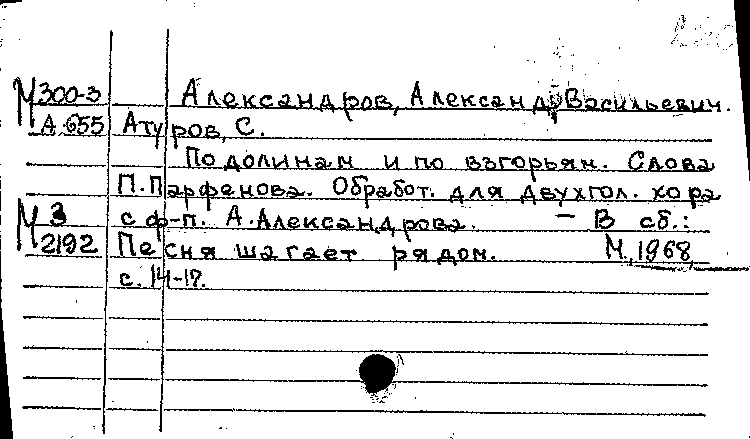 М300-3 Александров, Александр Васильевич.
А.655 Атуров, С.
По долинам и по взгорьям. Слова
П. Парфенова. Обработ. для двухгол. хора
М3 с ф-п. А. Александрова. – В сб.:
2192 Песня шагает рядом. М., 1968,
с. 14-17.